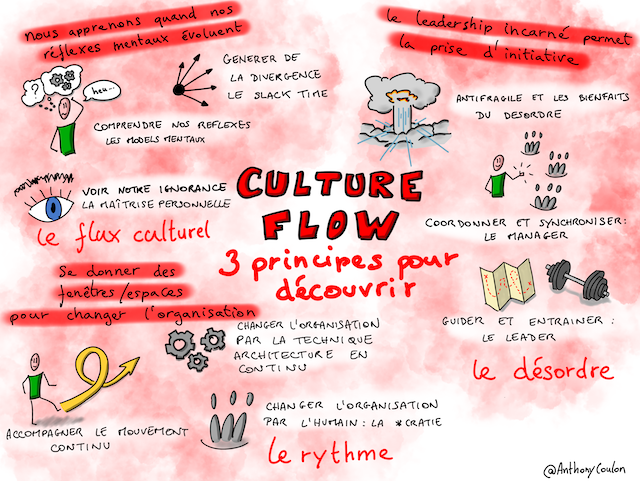 nous apprenons quand nos
réflexes mentaux évoluent
?
heu...
GENERER DE
LA DIVERGENCE
LE SLACK TIME
COMPRENDRE NOS REFLEXES
LES MODELS MENTAUX
VOIR NOTRE IGNORANCE
LA MAÎTRISE PERSONNELLE
le flux culturel
le leadership incarné permet
la prise d'initiative
ANTIFRAGILE ET LES BIENFAITS
DU DESORDRE
COORDONNER ET SYNCHRONISER:
LE MANAGER
GUIDER ET ENTRAINER :
LE LEADER
le désordre
CULTURE
FLOW
3 principes pour
découvrir
Se donner des
fenêtres/espaces
pour changer l'organisation
CHANGER L'ORGANISATION
PAR LA TECHNIQUE
ARCHITECTURE EN
CONTINU
ACCOMPAGNER LE MOUVEMENT
CONTINU
CHANGER L'ORGANISATION
PAR L'HUMAIN : LA *CRATIE
le rythme
@AnthonyCoulon